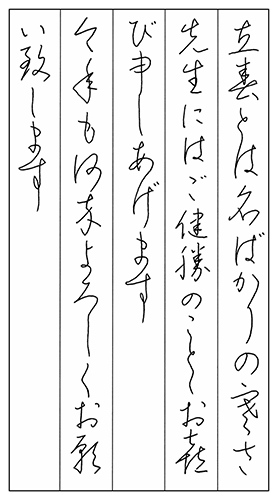 立春とは名ばかりの寒さ
先生にはご健勝のことゝお喜
び申しあげます
今年も何卒よろしくお願
い致します